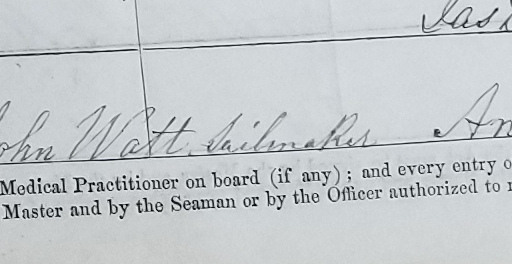 John Watt Sailmaker An
Medical Practitioner on board (if any); and every entry o
Master and by the Seaman or by the Officer authorized to